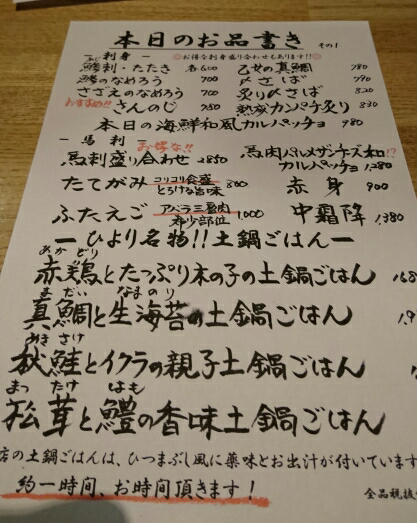 本日のお品書き その1
- 刺身 - ◎お得な刺身盛り合わせもあります!!◎
鯵刺・たたき 各600
鯵のなめろう 700
さざえのなめろう 700
おすすめ!! さんのじ 750
乙女の真鯛 780
〆さば 790
炙り〆さば 820
熟成カンパチ炙り 830
本日の海鮮和風カルパッチョ 980
- 馬刺 -
馬刺盛り合わせ 2850
馬肉パルメザンチーズ和!?
カルパッチョ 1,280
たてがみ コリコリ食感 とろける旨味 800
赤身 900
ふたえご アバラ三層肉 希少部位 1,000
中霜降 1,380
ー ひより名物!!土鍋ごはん ー
あか どり
赤鶏とたっぷり木の子の土鍋ごはん
ま だい なま のり
真鯛と生海苔の土鍋ごはん
あき さけ
秋鮭とイクラの親子土鍋ごはん
まつ たけ はも
松茸と鱧の香味土鍋ごはん
店の土鍋ごはんは、ひつまぶし風に薬味とお出汁が付いています
約一時間、お時間頂きます!
全品税抜